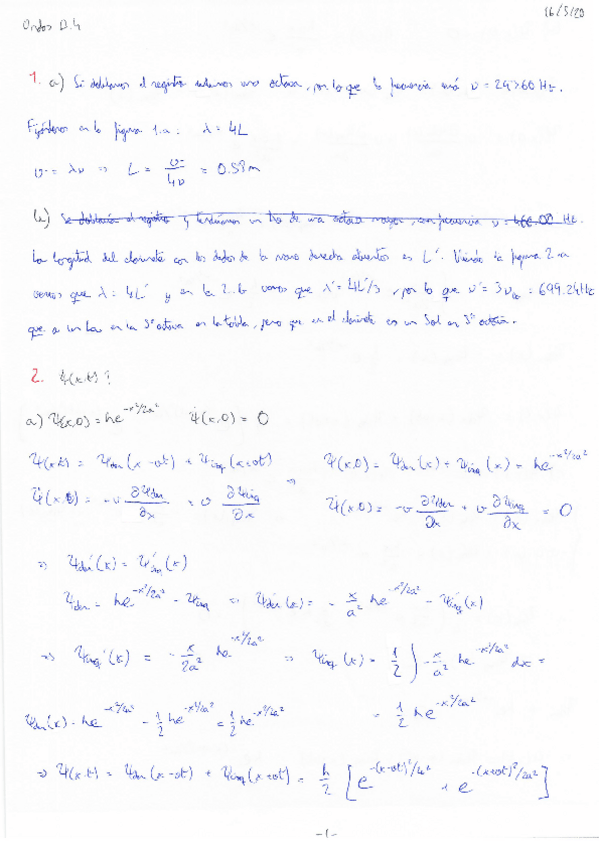 16/5/20
Ondas D.4
1. a) Si doblamos el registro subimos una octava, por lo que la frecuencia será ν = Hz.
Fijándonos en la figura 1.a: λ = 4L
v = λν ⇒ L = v/4ν = 0.59 m
b) Se doblaría el registro y tendríamos un de una octava mayor, con frecuencia ν = 466.00 Hz.
La longitud del clarinete con los dedos de la mano derecha abiertos es L'. Viendo la figura 2.a
vemos que λ = 4L' y en la 2.b vemos que λ' = 4L'/3, por lo que ν' = 3ν = 699.24Hz
que a un en la 3ª octava en la tabla, pero que en el clarinete es un Sol en 3ª octava.
2. ψ(x,t)?
a) Ψ(x,0) = he^(-x²/2a²) Ψ̇(x,0) = 0
Ψ(x,t) = Ψder(x-vt) + Ψizq(x+vt) ⇒ Ψ(x,0) = Ψder(x) + Ψizq(x) = he^(-x²/2a²)
Ψ̇(x,t) = -v ∂Ψder/∂x + v ∂Ψizq/∂x Ψ̇(x,0) = -v ∂Ψder/∂x + v ∂Ψizq/∂x = 0
⇒ Ψder'(x) = Ψizq'(x)
Ψder = he^(-x²/2a²) - Ψizq ⇒ Ψder'(x) = - x/a² he^(-x²/2a²) - Ψizq'(x)
⇒ Ψizq'(x) = - x/2a² he^(-x²/2a²) ⇒ Ψizq(x) = 1/2 ∫ - x/a² he^(-x²/2a²) dx =
Ψder(x) = he^(-x²/2a²) - 1/2 he^(-x²/2a²) = 1/2 he^(-x²/2a²) = 1/2 he^(-x²/2a²)
⇒ Ψ(x,t) = Ψder(x-vt) + Ψizq(x+vt) = h/2 [e^(-(x-vt)²/2a²) + e^(-(x+vt)²/2a²)]
-1-